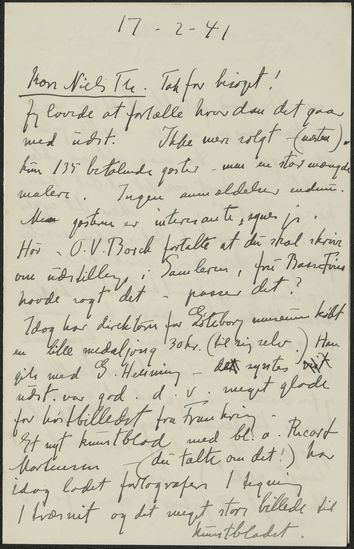 17 - 2 - 41
Kære Niels Th. Tak for besøget!
Jeg lovede at fortælle hvordan det gaar
med udst. Ikke mere solgt - (næsten)
kun 135 betalende gæster - men en stor mængde
malere. Ingen anmeldelser endnu.
Men gæsterne er interesante, synes jeg.
Hør - O.V. Borch fortalte at du skal skrive
om udstilling i Samleren, fru
havde sagt det - passer det?
Idag har direktøren for Göteborg museum købt
en lille medaljong 30 kr. (til sig selv) Han
gik med G. Helsning - syntes
udst. var god. d. v. meget glade
for høstbilledet fra Frankrig -
Et nyt kunstblad med bl. a. Ricard
Mortensen - (du talte om det!) har
idag ladet fortografere 1 tegning
1 træsnit og det meget store billede til
kunstbladet.